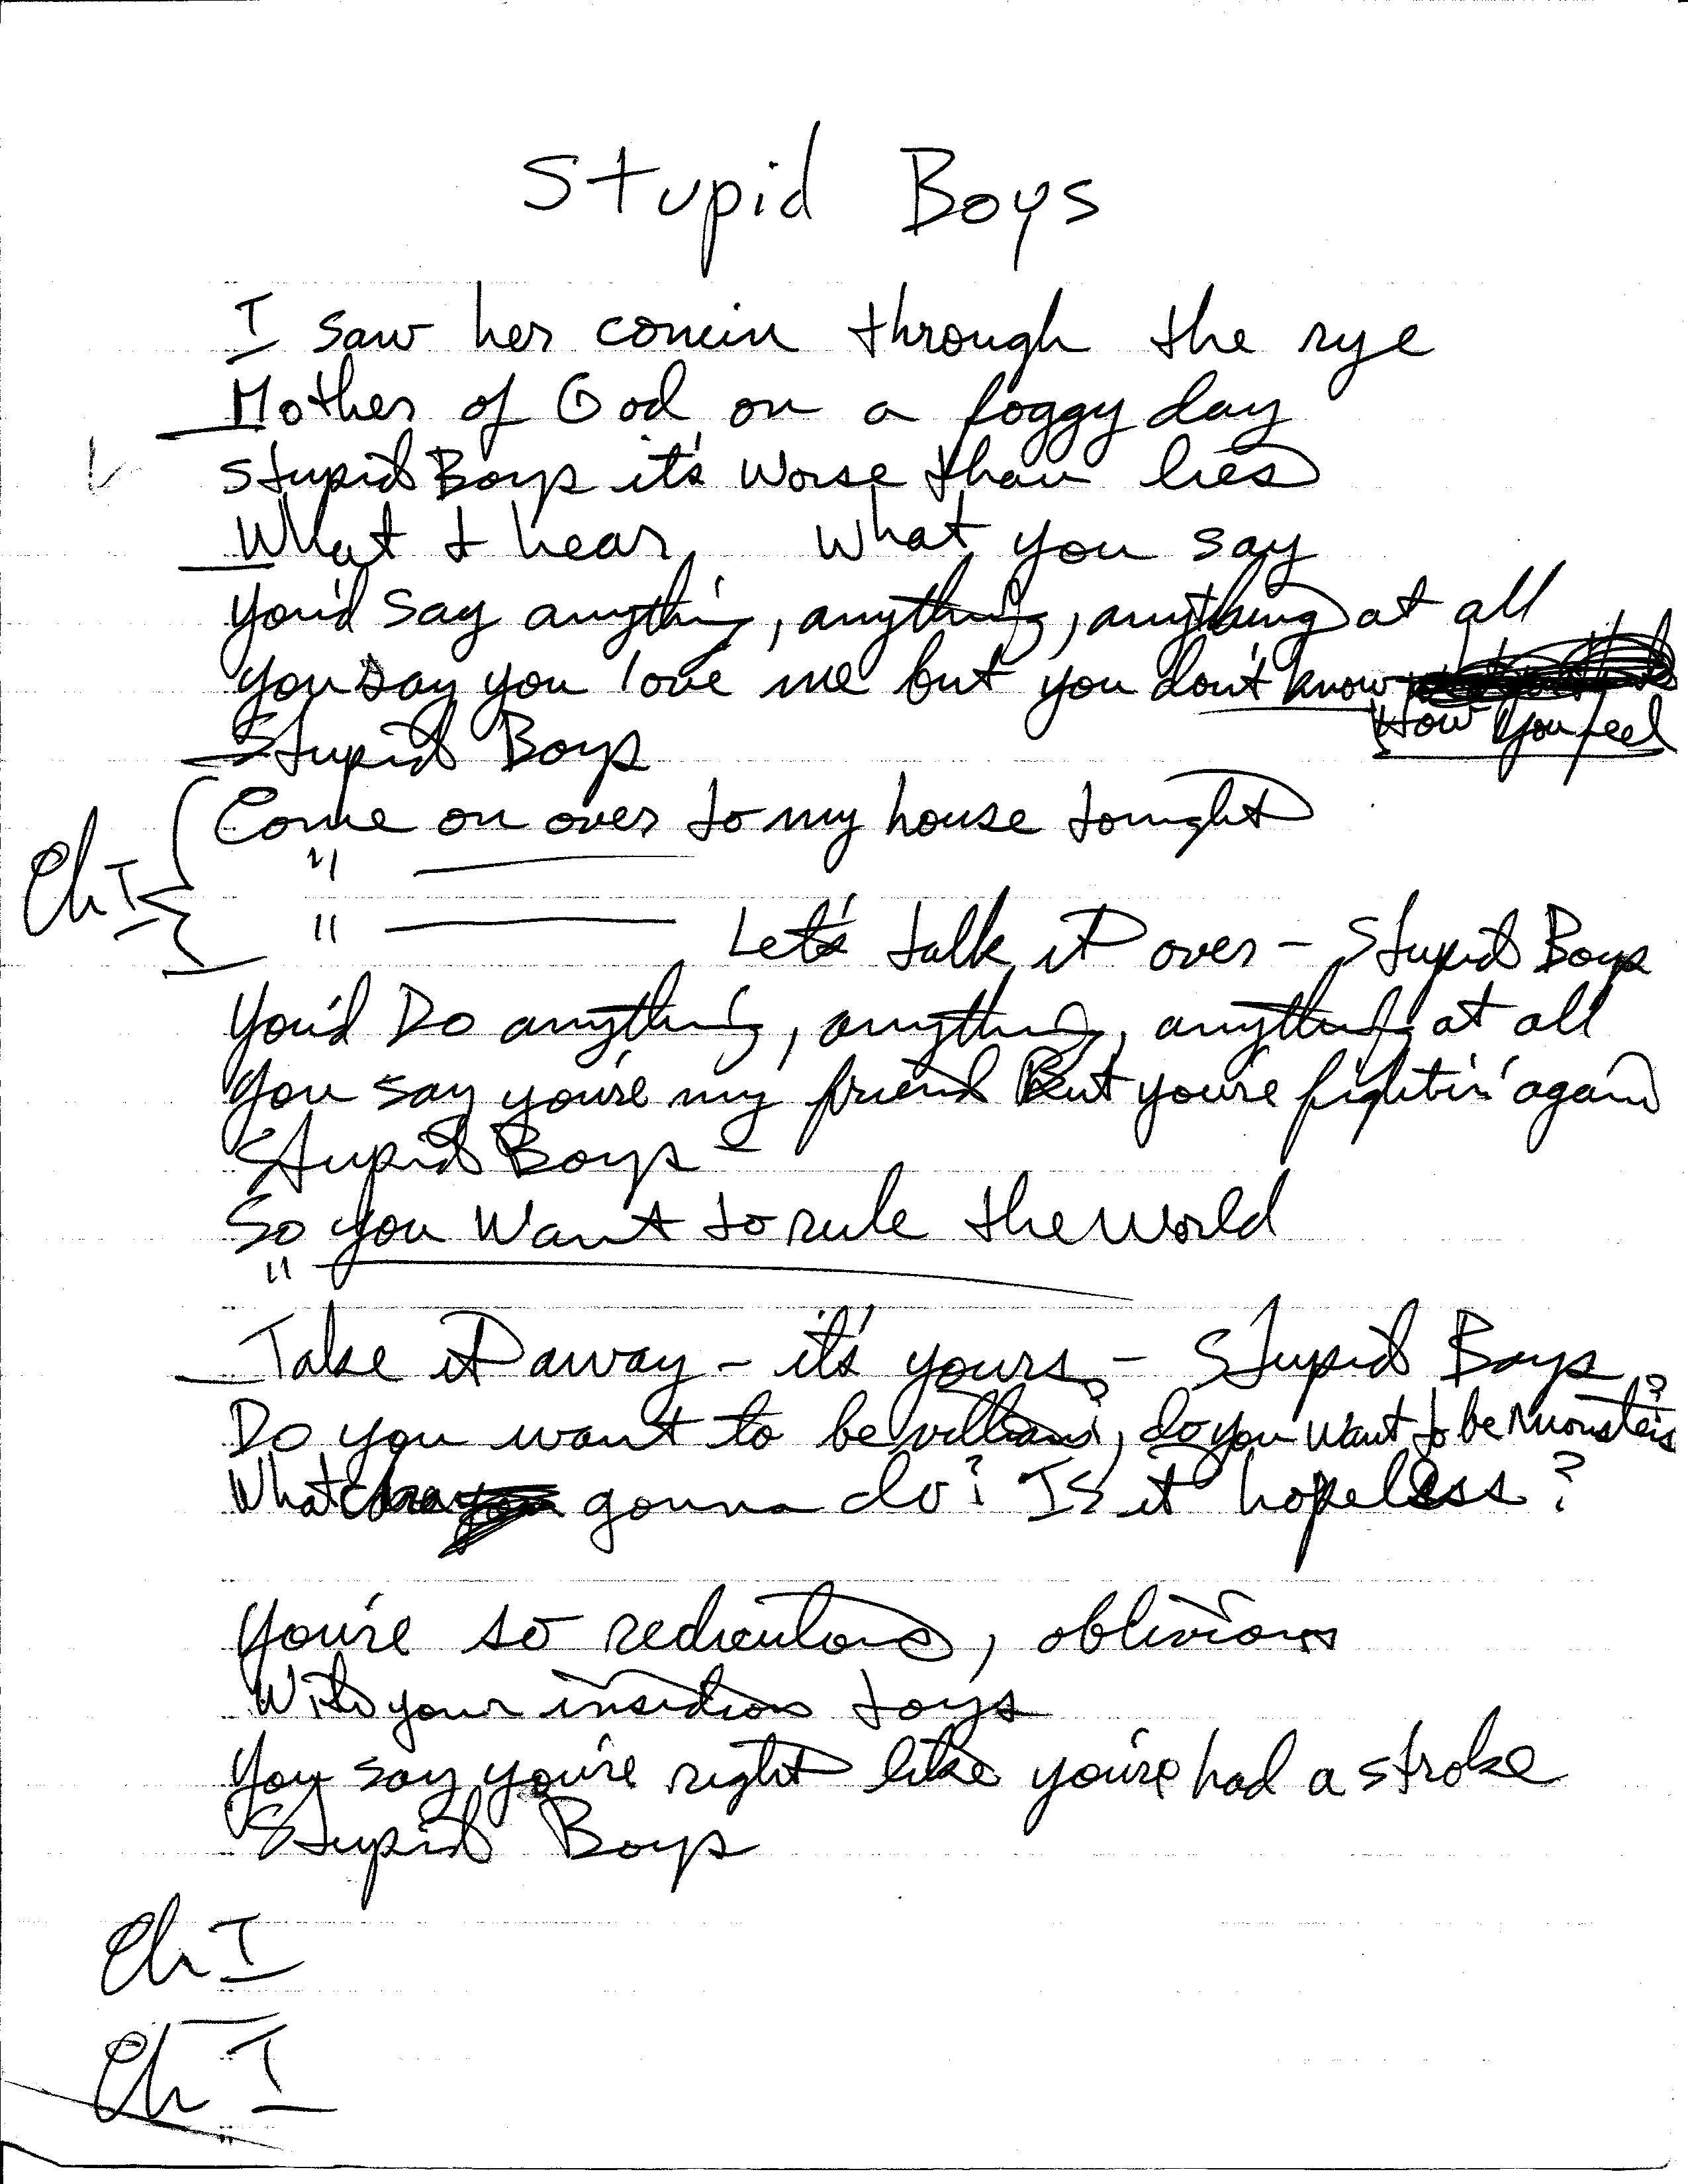 Stupid Boys
I saw her comin through the rye
Mother of God on a foggy day
Stupid Boys it's worse than lies
What I hear, what you say
You'd say anything, anything, anything at all
You say you love me but you don't know
How you feel
Stupid Boys
Come on over to my house tonight
Ch I
"
" Let's talk it over - Stupid Boys
You'd Do anything, anything, anything at all
You say you're my friend But you're fightin' again
Stupid Boys -
So you want to rule the world
"
Take it away - it's yours - Stupid Boys
Do you want to be villians?, do you want to be monsters?
Whatcha gonna do? Is it hopeless?
You're so rediculous, oblivious
With your insidious toys
You say you're right like you're had a stroke
Stupid Boys
Ch I
Ch I